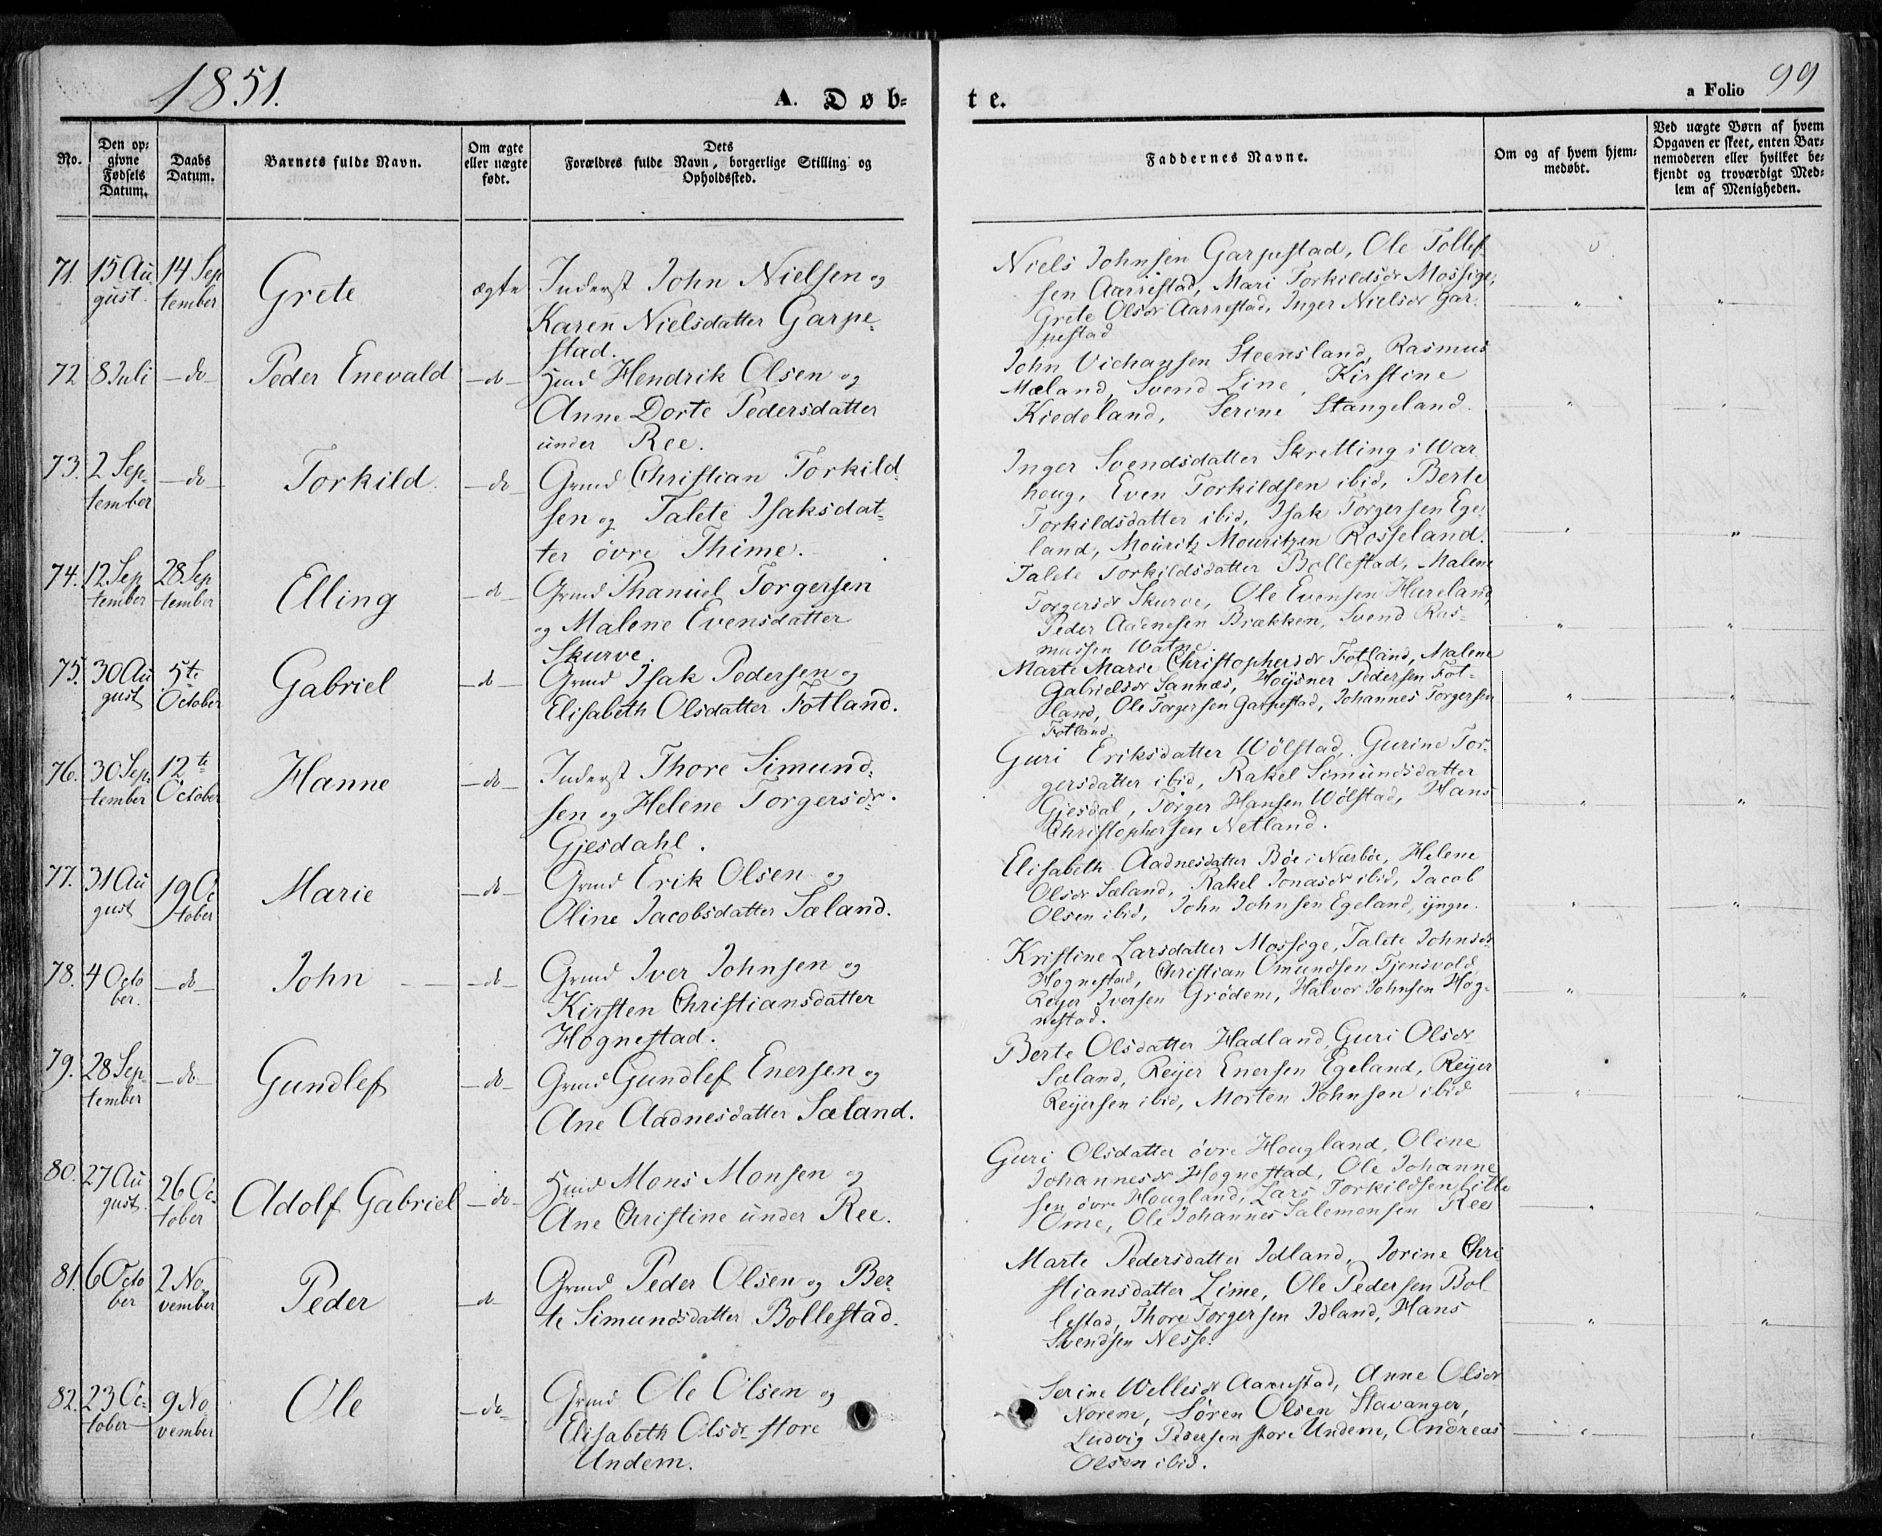 1851.
A. Døb-
te.
a Folio 99
No.
Den op-
givne
Fødsels
Datum.
Daabs
Datum.
Barnets fulde Navn.
Om ægte
eller uægte
født.
Dets
Forældres fulde Navn, borgerlige Stilling og
Opholdssted.
Faddernes Navne.
Om og af hvem hjem-
medøbt.
Ved uægte Børn af hvem
Opgaven er skeet, enten Bar-
nemoderen eller hvilket be-
kjendt og troværdigt Med-
lem af Menigheden.
71. 15 Au 14 Sep
gust. tember
Grete
ægte
Inderst John Nielsen og
Karen Nielsdatter Garpe-
stad.
Niels Johnsen Garpestad, Ole Tollef
sen Aarrestad, Mari Torkildsdr Mossige,
Grete Olsdr Aarrestad, Inger Nielsdr Gar-
pestad
72 8 Juli -do-
Peder Enevald
-do-
Huusmd Hendrik Olsen og
Anne Dorte Pedersdatter
under Ree.
John Vichansen Steensland, Rasmus
Mæland, Svend Line, Kirstine
Kiedeland, Serine Stangeland.
73. 2 Sep-
tember
-do-
Torkild.
-do-
Grmd Christian Torkild-
sen og Talete Isaksdat-
ter övre Thime.
Inger Svendsdatter Skretting i War
houg, Even Torkildsen ibid, Berte
Torkildsdatter ibid, Isak Torgersen Ege-
land, Mouritz Mouritzen Rosseland.
74. 12 Sep 28 Sep
tember tember
Elling
-do-
Grmd Thanuel Torgersen
og Malene Evensdatter
Skurve.
Talete Torkildsdatter Bollestad, Malene
Torgersdr Skurve, Ole Evensen Hureland,
Peder Aadnesen Brækken, Svend Ras-
mussen Watne.
75. 30 Au 5te
gust October
Gabriel
-do-
Grmd Isak Pedersen og
Elisabeth Olsdatter Fotland.
Marte Marie Christophersdr Fotland, Malene
Gabrielsdr Sannæs, Hoysner Pedersen Fot-
land, Ole Torgersen Garpestad, Johannes Torgersen
Fotland.
76. 30 Sep- 12te
tember October
Hanne
-do-
Inderst Thore Simund-
sen og Helene Torgersdr.
Gjesdahl.
Guri Eriksdatter Wølstad, Gurine Tor-
gersdatter ibid, Rakel Simundsdatter
Gjesdal, Torger Hansen Wølstad, Hans
Christophersen Netland.
77. 31 Au 19 Oc
gust tober
Marie
-do-
Grmd Erik Olsen og
Oline Jacobsdatter Sæland.
Elisabeth Aadnesdatter Böe i Nærböe, Helene
Olsdr Sæland, Rakel Jonasdr ibid, Jacob
Olsen ibid, John Johnsen Egeland, yngre.
78. 4 Octo
ber.
-do-
John
-do-
Grmd Iver Johnsen og
Kirsten Christiansdatter
Hognestad.
Kristine Larsdatter Mossige, Talete Johnsdr
Hognestad, Christian Omundsen Tjensvold
Reyer Iversen Grödem, Halvor Johnsen Hog-
nestad.
79. 28 Sep-
tember
-do-
Gundlef
-do-
Grmd Gundlef Enersen og
Ane Aadnesdatter Sæland.
Berte Olsdatter Hadland, Guri Olsdr
Sæland, Reijer Enersen Egeland, Reijer
Reijersen ibid, Morten Johnsen ibid
80. 27 Au 26 Oc-
gust. tober
Adolf Gabriel
-do-
Huusmd Mons Monsen og
Ane Christine under Ree.
Guri Olsdatter övre Hougland, Oline
Johannesdr Hognestad, Ole Johanne
sen övre Hougland, Lars Torkildsen litle
Ome, Ole Johannes Salemonsen Ree
81. 6 Octo 2 No
ber vember
Peder
-do-
Grmd Peder Olsen og Ber-
te Simundsdatter Bollestad.
Marte Pedersdatter Idland, Jorine Chri
stiansdatter Lime, Ole Pedersen Bol-
lestad, Thore Torgersen Idland, Hans
Svendsen Nesse.
82. 23 Oc- 9 No
tober vember
Ole
-do-
Grmd Ole Olsen og
Elisabeth Olsdr store
Undem.
Serine Wellesdr Aarrestad, Anne Olsdr
Norem, Sören Olsen Stavanger,
Ludvig Pedersen store Undem, Andreas
Olsen ibid.